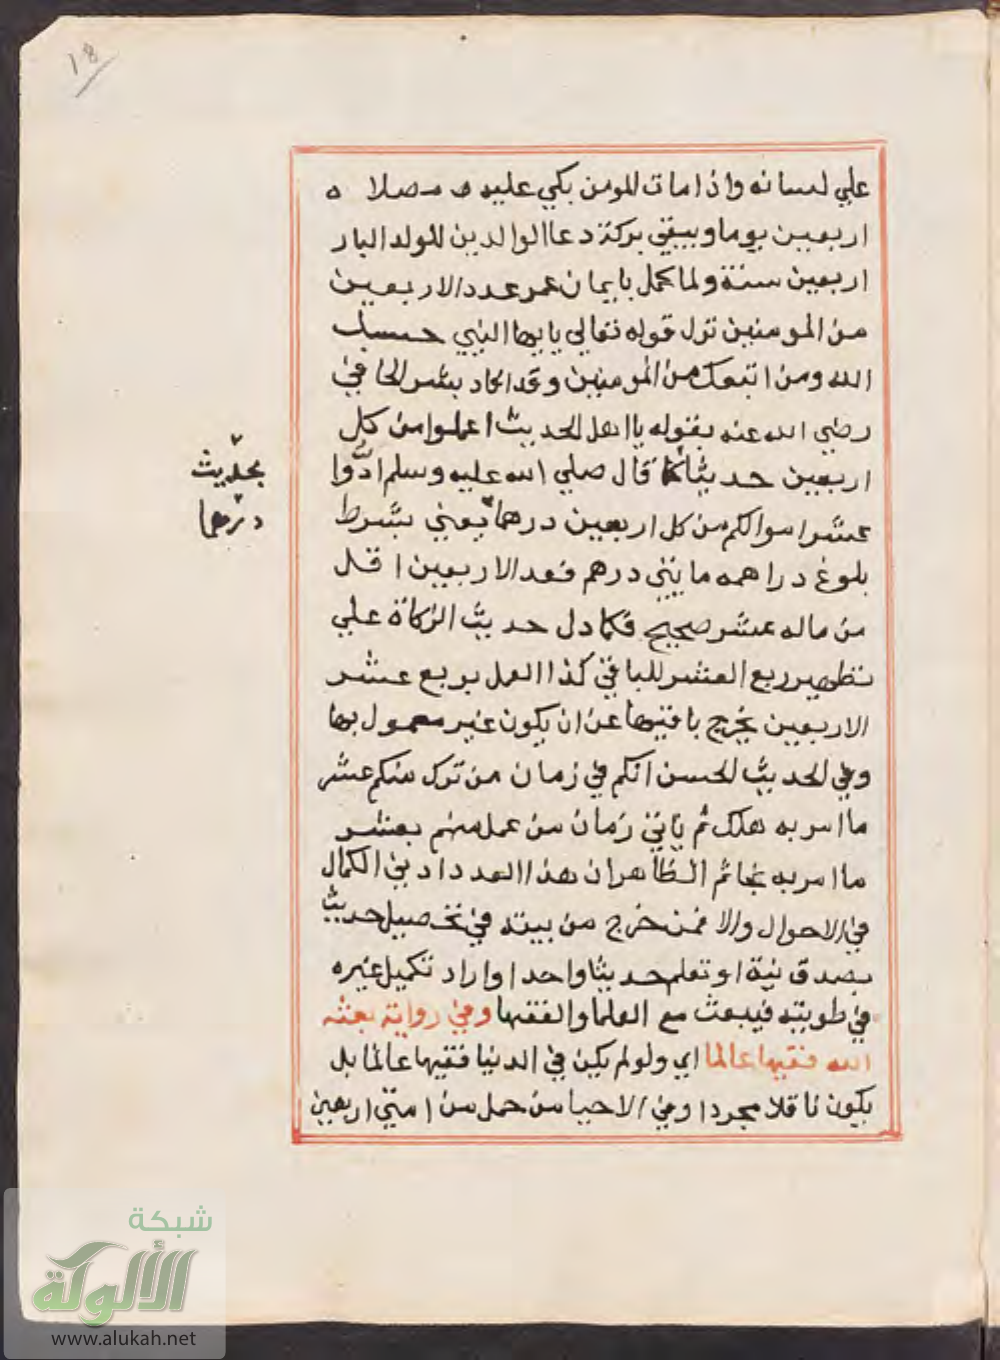 18
علي لسانه واذا مات المومن بكي عليه مصلاه
اربعين يوما ويبقي بركة دعا الوالدين للولد البار
اربعين سنة ولما كمل بايمان عمر عدد الاربعين
من المومنين نزل قوله تعالي يا يها النبي حسبك
الله ومن اتبعك من المومنين وقد افاد بشر الحافي
رضي الله عنه بقوله يا اهل الحديث اعملوا من كل
اربعين حديثا كما قال صلي الله عليه وسلم ادُّوا
عشر اموالكم من كل اربعين درهما يعني بشرط
بلوغ دراهمه مايتي درهم فعد الاربعين اقل
من ماله عشر صحيح فكما دل حديث الزكاة علي
تطهير ربع العشر للباقي كذا العمل بربع عشر
الاربعين يخرج باقيها عن ان يكون غير معمول بها
وفي الحديث الحسن انكم في زمان من ترك منكم عشر
ما امر به هلك ثم ياتي زمان من عمل منهم بعشر
ما امر به نجا ثم الظاهر ان هذا العدد ادني الكمال
في الاحوال والا فمن خرج من بيته في تحصيل حديث
بصدق نية او تعلم حديثا واحدا واراد تكميل غيره
في طويته فيبعث مع العلما والفقها وفي رواية بعثه
الله فقيها عالما اي ولو لم يكن في الدنيا فقيها عالما بل
يكون ناقلا مجردا وفي الاحيا من حمل من امتي اربعين
بحديث
درهما
شبكة
الألوكة
www.alukah.net